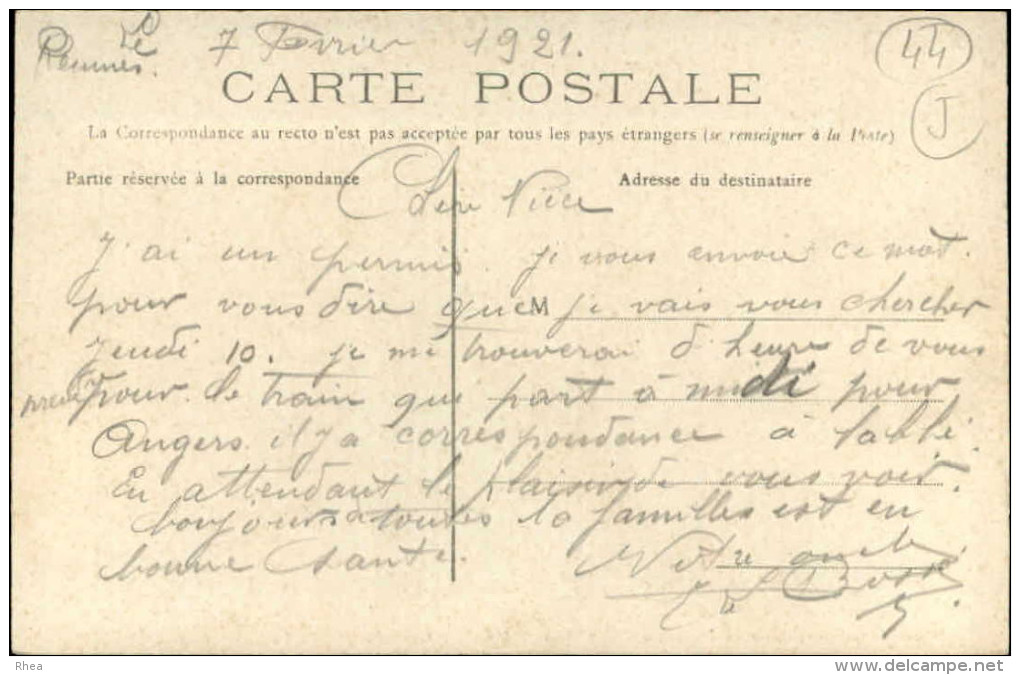 Rennes. Le 7 Fevrier 1921.
44
J
CARTE POSTALE
La Correspondance au recto n'est pas acceptée par tous les pays étrangers (se renseigner à la Poste)
Partie réservée à la correspondance
Adresse du destinataire
Chère Nièce
J'ai un permis. je vous envoie ce mot.
pour vous dire que M je vais vous chercher
Jeudi 10. je me trouverai d heure de vous
pour le train que part à midi pour
Angers. il y a correspondance à Sablé
En attendant le plaisir de vous voir.
bonjour a toutes la familles est en
bonne santé.
Votre oncle
Rhea
delcampe.net